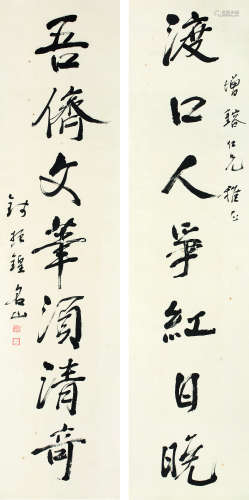 增瑢仁兄雅正
渡口人爭紅日晚
吾儕文筆須清奇
錢振鍠名山